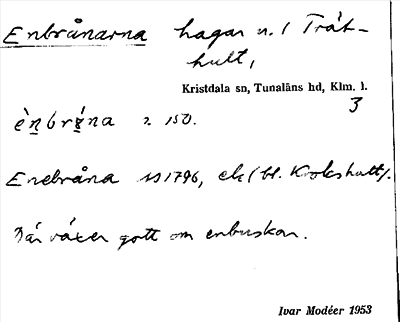 Enbrånarna hagar n. I Trät-
hult,
Kristdala sn, Tunaläns hd, Klm. l.
3
è̀nbrǻna 2 150.
Enebråna SS 1796, ek (bl. Krokshult).
Där växer gott om enbuskar.
Ivar Modéer 1953